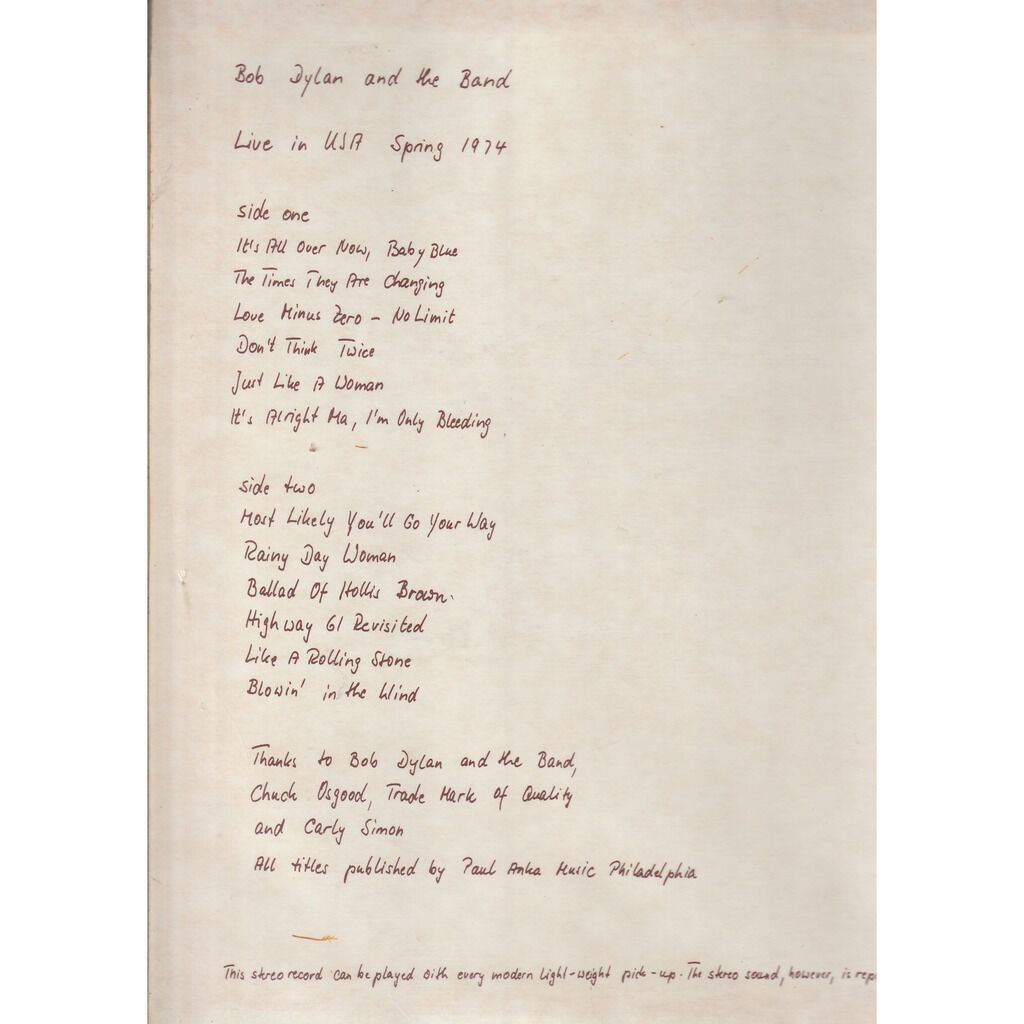 Bob Dylan and the Band
Live in USA Spring 1974
side one
It's All Over Now, Baby Blue
The Times They Are Changing
Love Minus Zero - No Limit
Don't Think Twice
Just Like A Woman
It's Alright Ma, I'm Only Bleeding
side two
Most Likely You'll Go Your Way
Rainy Day Woman
Ballad Of Hollis Brown
Highway 61 Revisited
Like A Rolling Stone
Blowin' in the Wind
Thanks to Bob Dylan and the Band,
Chuck Osgood, Trade Mark of Quality
and Carly Simon
All titles published by Paul Anka Music Philadelphia
This stereo record can be played with every modern light-weight pick-up. The stereo sound, however, is